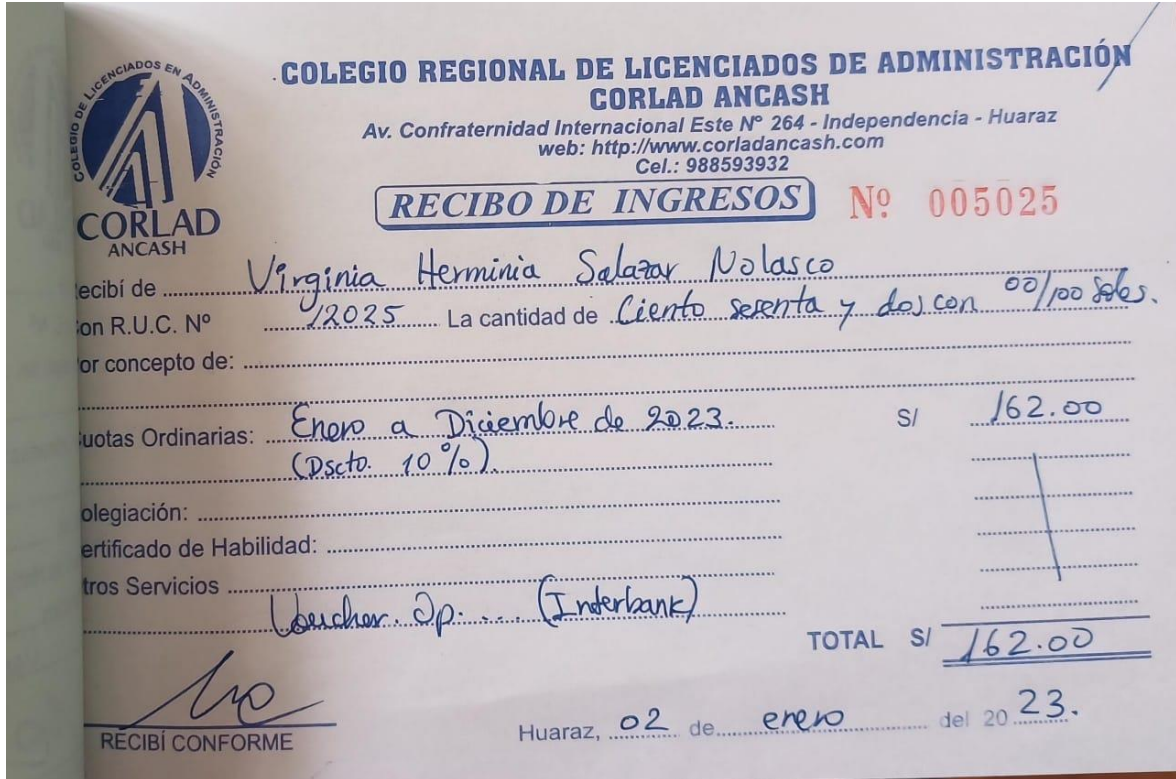 COLEGIO DE LICENCIADOS EN ADMINISTRACIÓN
CORLAD
ANCASH
COLEGIO REGIONAL DE LICENCIADOS DE ADMINISTRACIÓN
CORLAD ANCASH
Av. Confraternidad Internacional Este Nº 264 - Independencia - Huaraz
web: http://www.corladancash.com
Cel.: 988593932
RECIBO DE INGRESOS Nº 005025
ecibí de Virginia Herminia Salazar Nolasco
on R.U.C. Nº 12025 La cantidad de Ciento sesenta y dos con 00/100 Soles.
or concepto de:
uotas Ordinarias: Enero a Diciembre de 2023. S/ 162.00
(Dscto. 10%).
olegiación:
ertificado de Habilidad:
tros Servicios
Voucher. Op. .... (Interbank)
TOTAL S/ 162.00
RECIBÍ CONFORME
Huaraz, 02 de enero del 2023.